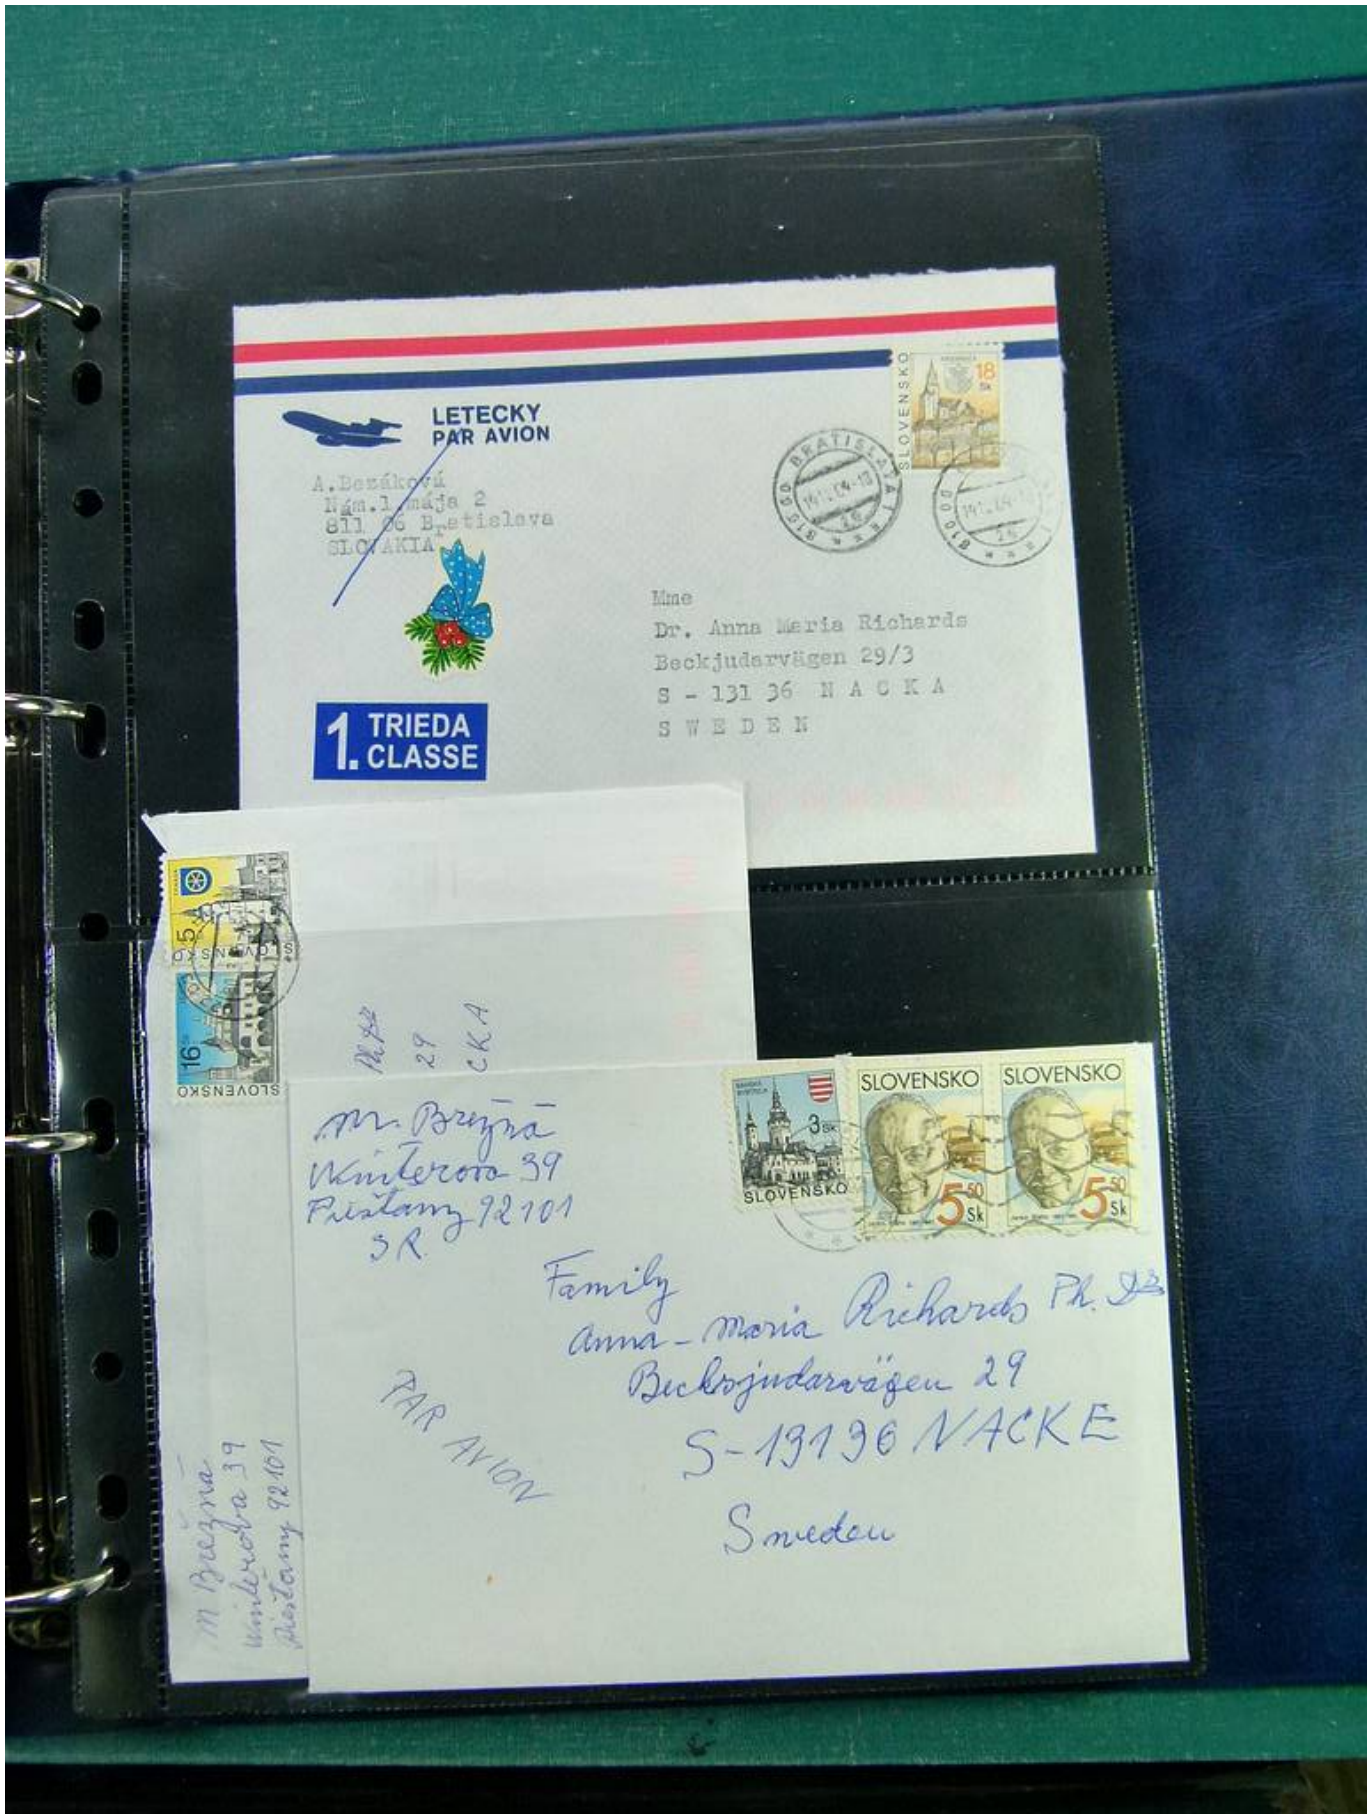 LETECKY
PAR AVION
A.Bezáková
Nám.1.mája 2
811 06 Bratislava
SLOVAKIA
SLOVENSKO
18
Sk
81000 BRATISLAVA 1
81000
Mme
Dr. Anna Maria Richards
Beckjudarvägen 29/3
S - 131 36 N A C K A
S W E D E N
1. TRIEDA
CLASSE
5
SLOVENSKO
16
SLOVENSKO
29
CKA
M Brezná
Winterova 39
Piešťany 92101
M. Brezná
Winterova 39
Piešťany 92101
SR
3 Sk
SLOVENSKO
SLOVENSKO
5 50
Sk
SLOVENSKO
5 50
Sk
Family
Anna - Maria Richards Ph.
Becksjudarvägen 29
S-13136 NACKE
Sweden
PAR AVION